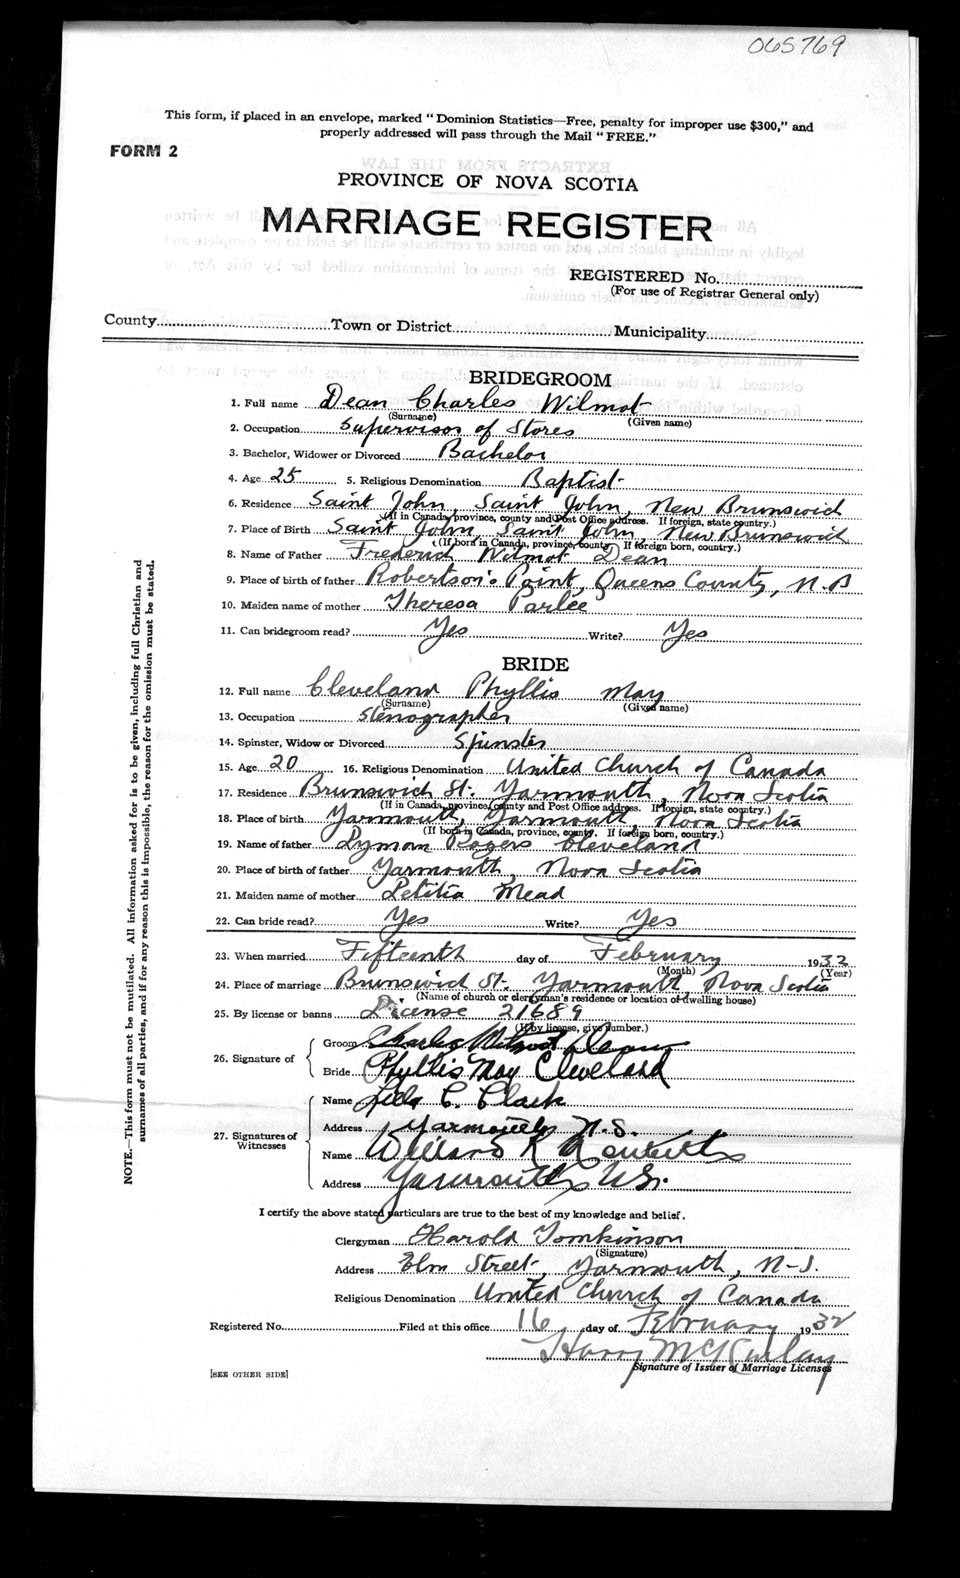 065769
This form, if placed in an envelope, marked "Dominion Statistics—Free, penalty for improper use $300," and
properly addressed will pass through the Mail "FREE."
FORM 2
PROVINCE OF NOVA SCOTIA
MARRIAGE REGISTER
REGISTERED No.
(For use of Registrar General only)
County Town or District Municipality
BRIDEGROOM
1. Full name Dean Charles Wilmot
(Surname) (Given name)
2. Occupation Supervisor of Stores
3. Bachelor, Widower or Divorced Bachelor
4. Age 25 5. Religious Denomination Baptist
6. Residence Saint John, Saint John, New Brunswick
(If in Canada, province, county and Post Office address. If foreign, state country.)
7. Place of Birth Saint John, Saint John, New Brunswick
(If born in Canada, province, county. If foreign born, country.)
8. Name of Father Frederick Wilmot Dean
9. Place of birth of father Robertson's Point, Queens County, N.B
10. Maiden name of mother Theresa Parlee
11. Can bridegroom read? Yes Write? Yes
BRIDE
12. Full name Cleveland Phyllis May
(Surname) (Given name)
13. Occupation Stenographer
14. Spinster, Widow or Divorced Spinster
15. Age 20 16. Religious Denomination United Church of Canada
17. Residence Brunswick St. Yarmouth, Nova Scotia
(If in Canada, province, county and Post Office address. If foreign, state country.)
18. Place of birth Yarmouth, Yarmouth, Nova Scotia
(If born in Canada, province, county. If foreign born, country.)
19. Name of father Lyman Rogers Cleveland
20. Place of birth of father Yarmouth, Nova Scotia
21. Maiden name of mother Letitia Mead
22. Can bride read? Yes Write? Yes
23. When married Fifteenth day of February 1932
(Month) (Year)
24. Place of marriage Brunswick St. Yarmouth, Nova Scotia
(Name of church or clergyman's residence or location of dwelling house)
25. By license or banns License 21689
(If by license, give number.)
26. Signature of
Groom Charles Wilmot Dean
Bride Phyllis May Cleveland
27. Signatures of Witnesses
Name C. Clark
Address Yarmouth N.S.
Name K
Address Yarmouth N.S.
I certify the above stated particulars are true to the best of my knowledge and belief.
Clergyman Harold Tomkinson
(Signature)
Address Elm Street, Yarmouth, N-S.
Religious Denomination United Church of Canada
Registered No. Filed at this office 16 day of February 1932
Harry McKinlay
Signature of Issuer of Marriage Licenses
[SEE OTHER SIDE]
NOTE.—This form must not be mutilated. All information asked for is to be given, including full Christian and
surnames of all parties, and if for any reason this is impossible, the reason for the omission must be stated.